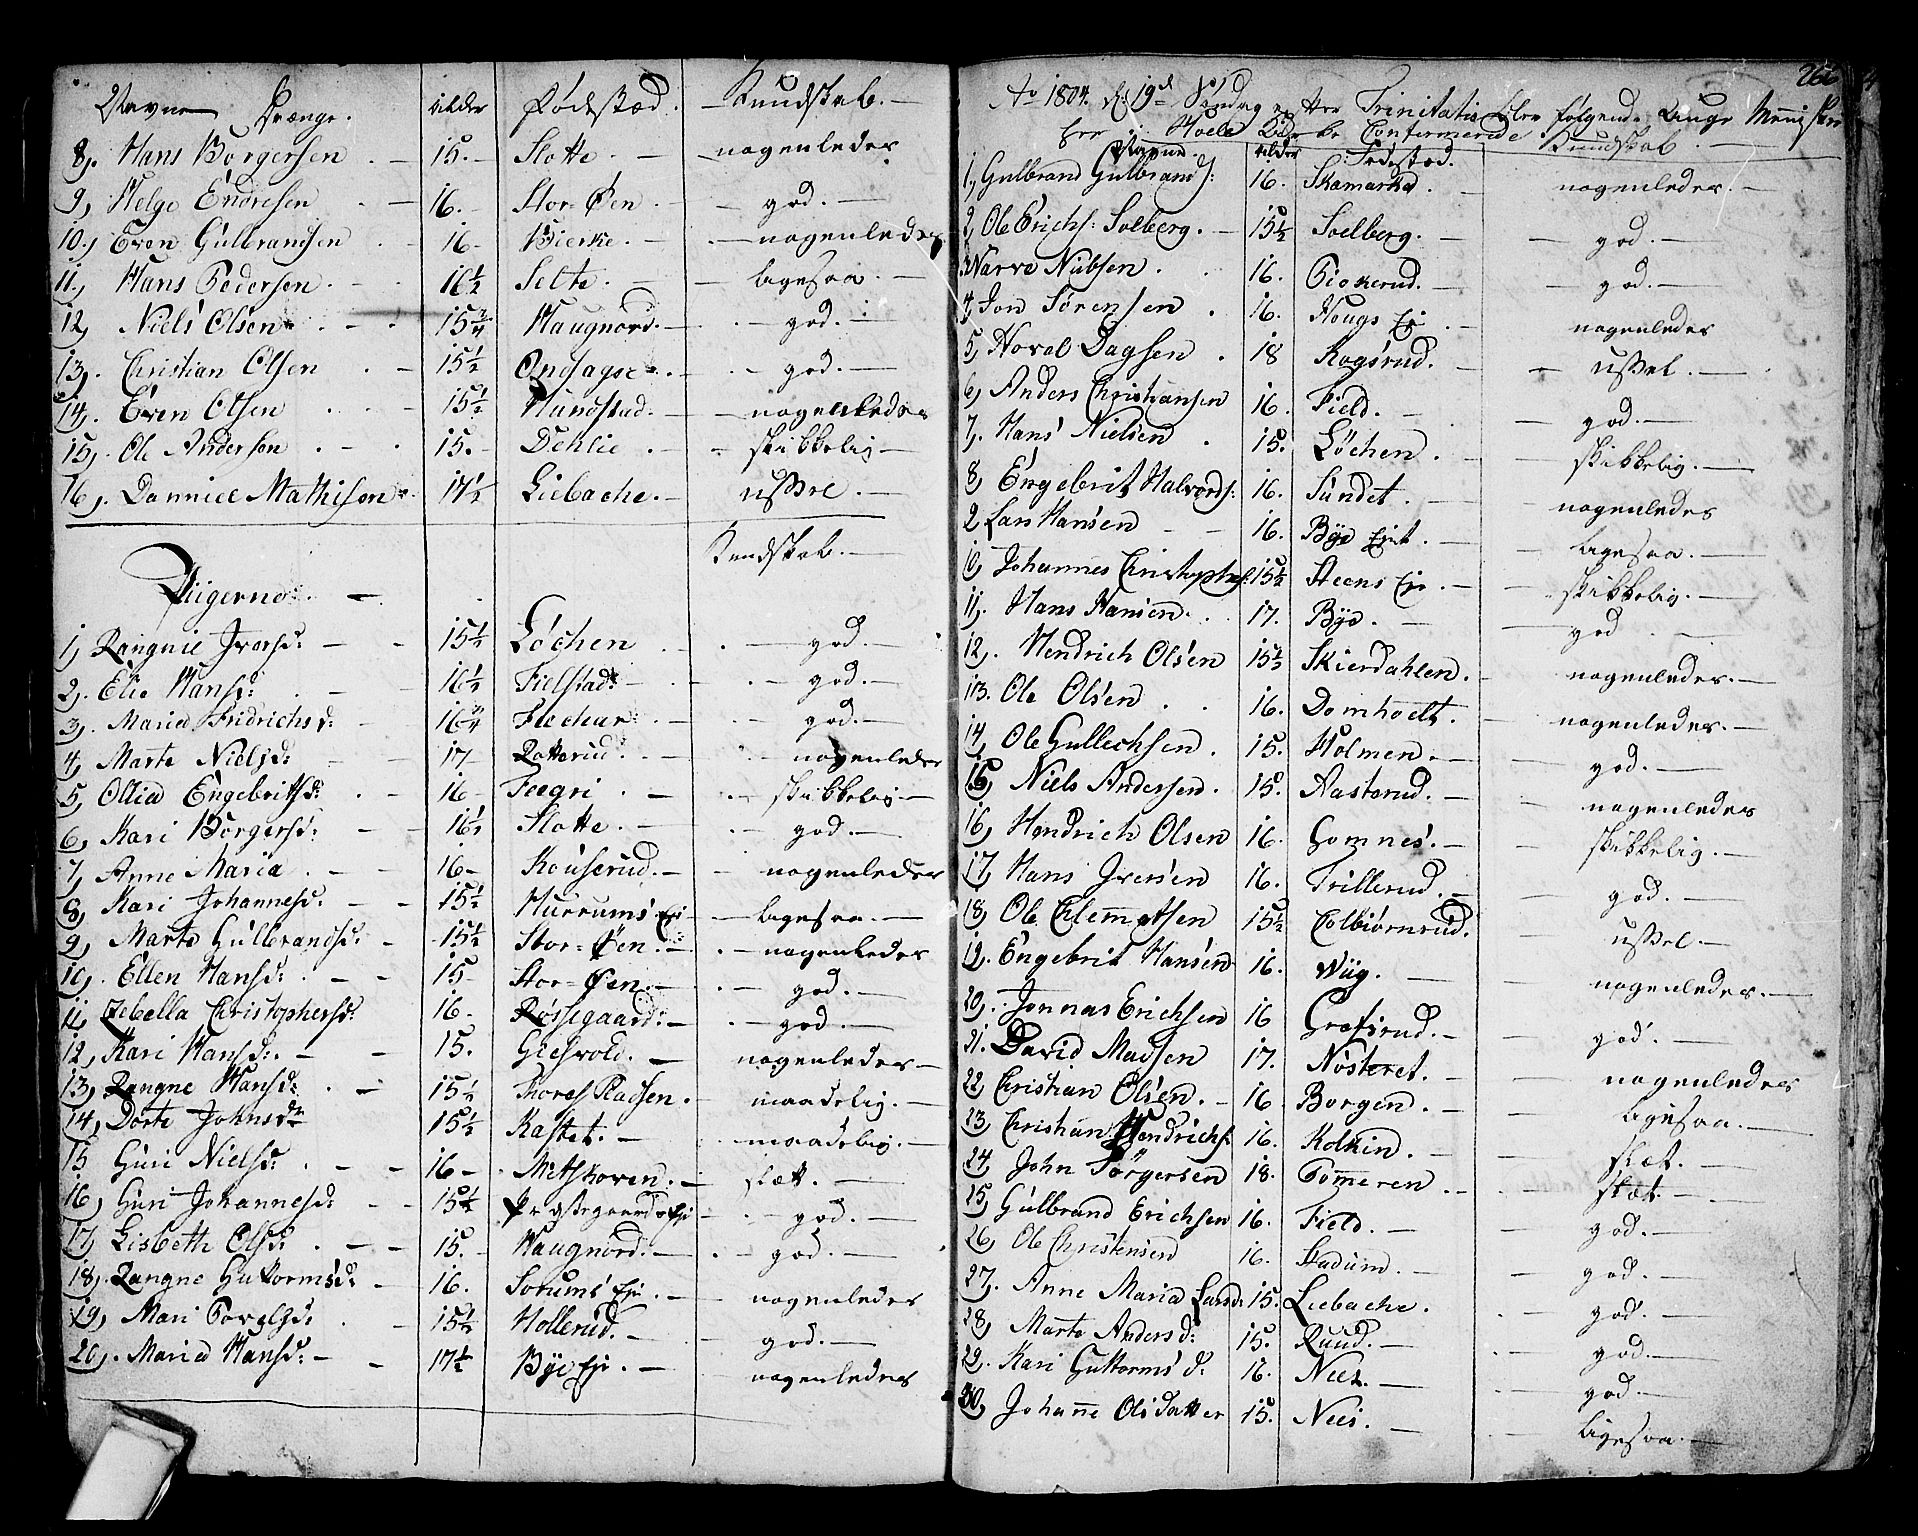 Navne Drænge. Alder Fødstæd. Kundskab.
8. Hans Borgersen 15. Slotte. nogenledes
9, Helge Endresen 16. Stor-Øen god.
10., Even Gulbrandsen 16 Bierke. nogenledes
11., Hans Pedersen. 16½ Selte. ligesaa.
12, Niels Olsen 15¾ Haugnord. god.
13, Christian Olsen 15½ Onsager. god.
14, Even Olsen 15½ Hundstad: nogenledes
15, Ole Andersen 15. Dehlie. skikkelig
16, Danniel Mathison 17½ Liebache. ussel.
Kundskab.
Piigerne.
1, Rangnie Iversd: 15½ Løchen god.
2. Elie Hansd: 16½ Fielstad: god.
3, Maria Fridrichsd: 16¾ god.
4, Marte Nielsd: 17 Rotterud. nogenledes
5, Ollia Engebritsd: 16 Feegri skikkelig
6, Kari Borgersd: 16½ Slotte. god.
7, Anne Maria 16 Kouserud. nogenleder
8, Kari Johannesd: 15½ Hurrums Ei ligesaa.
9, Marte Gulbrandsd: 15½ Stor-Øen. nogenledes
10, Ellen Hansd: 15 Stor-Øen. god.
11, Zebella Christophersd: 16. Røssegaard: god.
12, Kari Hansd: 15. Gielsvold. nogenledes
13, Rangne Hansd: 15½ Thores Pladsen. maadelig.
14, Dorte Johnsdr 15½ Kastet. maadelig.
15 Guri Nielsd: 16 Metskoven. slætt.
16, Guri Johannesd: 15½ Præstegaards Ei god.
17, Lisbeth Olsd: 15. Haugnord. god.
18, Rangne Guttormsd: 16. Sorums Eje. nogenledes
19, Mari Torelsd: 15½ Hollerud. god.
20, Maria Hansd: 17½ Bye Eje. nogenledes
266
Ao 1804. d: 19de Søndag efter Trinitatis blev følgende unge Mennisker
for Hole Kirke Confirmerede
Navne. Alder Fødestæd. Kundskab.
1, Gulbrand Gulbrands: 16. Skamarka. nogenledes.
2, Ole Erichs: Solberg. 15½ Soelberg. god.
3. Narve Nubsen. 16. god.
4, Jon Sørensen 16. Hougs Ej. nogenledes
5, Hovel Dagsen 18 Rogsrud. ussel.
6, Anders Christiansen 16. Field. god.
7, Hans Nielsen 15. Løchen. skikkelig.
8, Engebrit Halvords: 16. Sundet. nogenledes
9 Lars Hansen 16. Bye Ejet. ligesaa.
10, Johannes Christophs: 15½ Steens Eje. skikkelig.
11, Hans Hansen. 17. Bye. god
12, Hendrich Olsen 15½ Skierdahlen. nogenledes.
13. Ole Olsen 16. Domholt. nogenledes.
14, Ole Gullechsen 15. Holmen. god.
15, Niels Andersen. 15. Aasterud. nogenledes
16, Hendrich Olsen 16. Gomnes. skikkelig.
17, Hans Iversen 16. Trillerud. god.
18, Ole Clemmetsen 15½ Colbiørnrud. ussel.
19. Engebrit Hansen 16. Wiig. nogenledes.
20. Jonnas Erichsen 16 Grøfsrud. god.
21. David Madsen 17. Nøsteret. nogenledes
22 Christian Olsen. 16 Borgen. ligesaa.
23, Christian Hendrichs: 16. Kolkin. slæt.
24 John Jørgersen 18. Pomeren. slæt.
25, Gulbrand Erichsen 16. Field. god.
26, Ole Christensen 16. Stadum. god.
27. Anne Maria Larsd: 15. Liebache. god.
28, Marte Andersd: 15. Ruud. god.
29. Kari Guttormsd: 16. Nees. god.
30, Johanne Olsdatter 15. Nees. ligesaa.